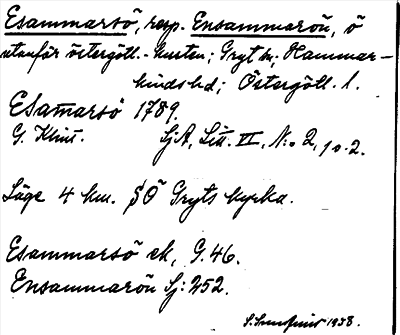 Esammarsö, resp. Ensammarön, ö
utanför östergötl.-kusten; Gryt sn; Hammar-
kinds hd; Östergötl. l.
Esam̄arsö 1789.
G. Klint. SjA, Litt. VI, N:o 2, p. 2.
Läge 4 km. SÖ Gryts kyrka.
Esammarsö ek, G. 46.
Ensammarön Sj: 252.
1938.